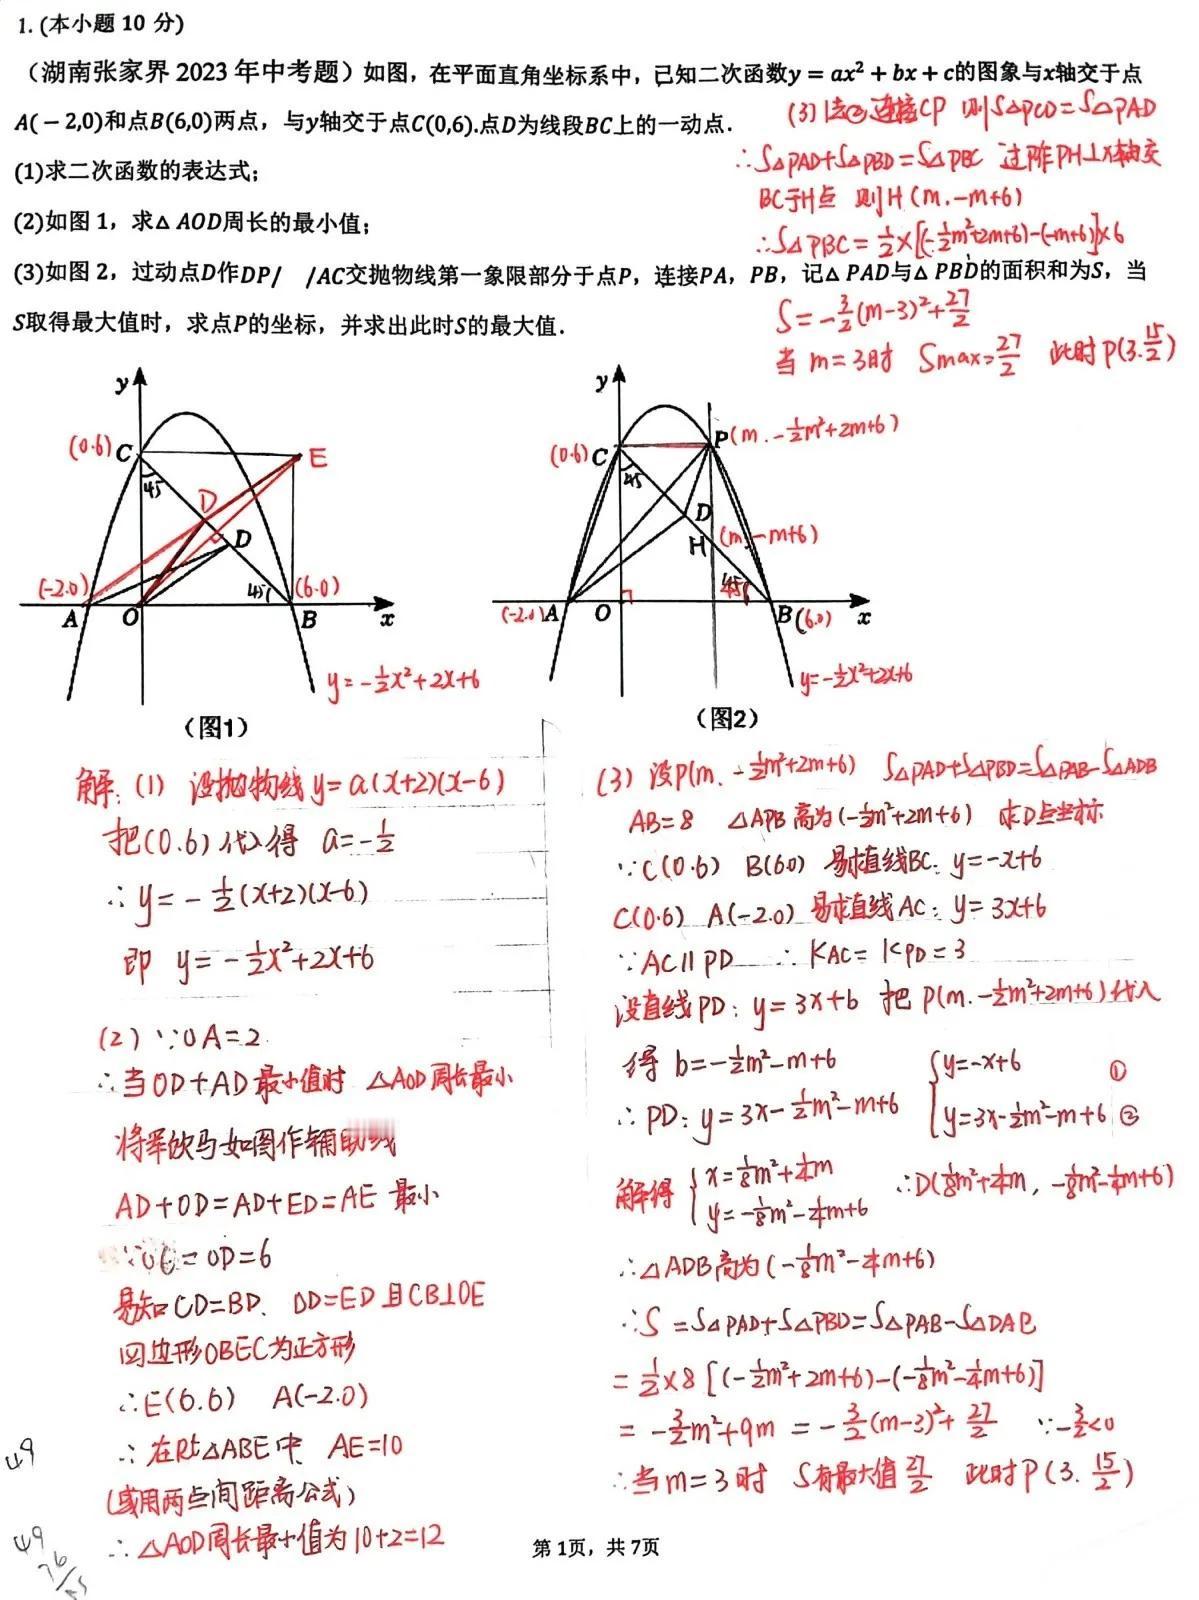 1. (本小题 10 分)
（湖南张家界 2023 年中考题）如图，在平面直角坐标系中，已知二次函数y = ax² + bx + c的图象与x轴交于点
A(－2,0)和点B(6,0)两点，与y轴交于点C(0,6).点D为线段BC上的一动点.
(1)求二次函数的表达式；
(2)如图 1，求△ AOD周长的最小值；
(3)如图 2，过动点D作DP/ /AC交抛物线第一象限部分于点P，连接PA，PB，记△ PAD与△ PBD的面积和为S，当
S取得最大值时，求点P的坐标，并求出此时S的最大值.
(3) 法② 连接CP 则S△PCD=S△PAD
∴S△PAD+S△PBD=S△PBC 过P作PH⊥X轴交
BC于H点 则H(m.-m+6)
∴S△PBC=½×[(-½m²+2m+6)-(-m+6)]×6
S=-3/2(m-3)²+27/2
当 m=3时 Smax=27/2 此时P(3.15/2)
y
(0.6) C
E
45
D
D
(-2.0)
45
(6.0)
A
O
B
x
y=-½x²+2x+6
（图1）
y
(0.6) C
P(m.-½m²+2m+6)
45
D
H
(m.-m+6)
45
(-2.0)A
O
B(6.0)
x
y=-½x²+2x+6
（图2）
解：(1) 设抛物线y=a(x+2)(x-6)
把(0.6)代入得 a=-½
∴y=-½(x+2)(x-6)
即 y=-½x²+2x+6
(2) ∵OA=2
∴当OD+AD最小值时 △AOD周长最小
将军饮马如图作辅助线
AD+OD=AD+ED=AE 最小
∵OC=OD=6
易知CD=BD. OD=ED且CB⊥OE
四边形OBEC为正方形
∴E(6.6) A(-2.0)
∴在Rt△ABE中. AE=10
(或用两点间距离公式)
∴△AOD周长最小值为10+2=12
(3) 设P(m.-½m²+2m+6) S△PAD+S△PBD=S△PAB-S△ADB
AB=8 △APB高为(-½m²+2m+6) 求D点坐标
∵C(0.6) B(6.0) 易求直线BC: y=-x+6
C(0.6) A(-2.0) 易求直线AC: y=3x+6
∵AC∥PD ∴KAC=KPD=3
设直线PD: y=3x+b 把P(m.-½m²+2m+6)代入
得 b=-½m²-m+6
∴PD: y=3x-½m²-m+6
{y=-x+6 ①
y=3x-½m²-m+6 ②
解得 {x=⅛m²+¼m
y=-⅛m²-¼m+6
∴D(⅛m²+¼m, -⅛m²-¼m+6)
∴△ADB高为(-⅛m²-¼m+6)
∴S=S△PAD+S△PBD=S△PAB-S△DAB
=½×8[(-½m²+2m+6)-(-⅛m²-¼m+6)]
=-3/2m²+9m=-3/2(m-3)²+27/2 ∵-3/2<0
∴当m=3时 S有最大值27/2 此时P(3.15/2)
49
49
第 1页，共 7页